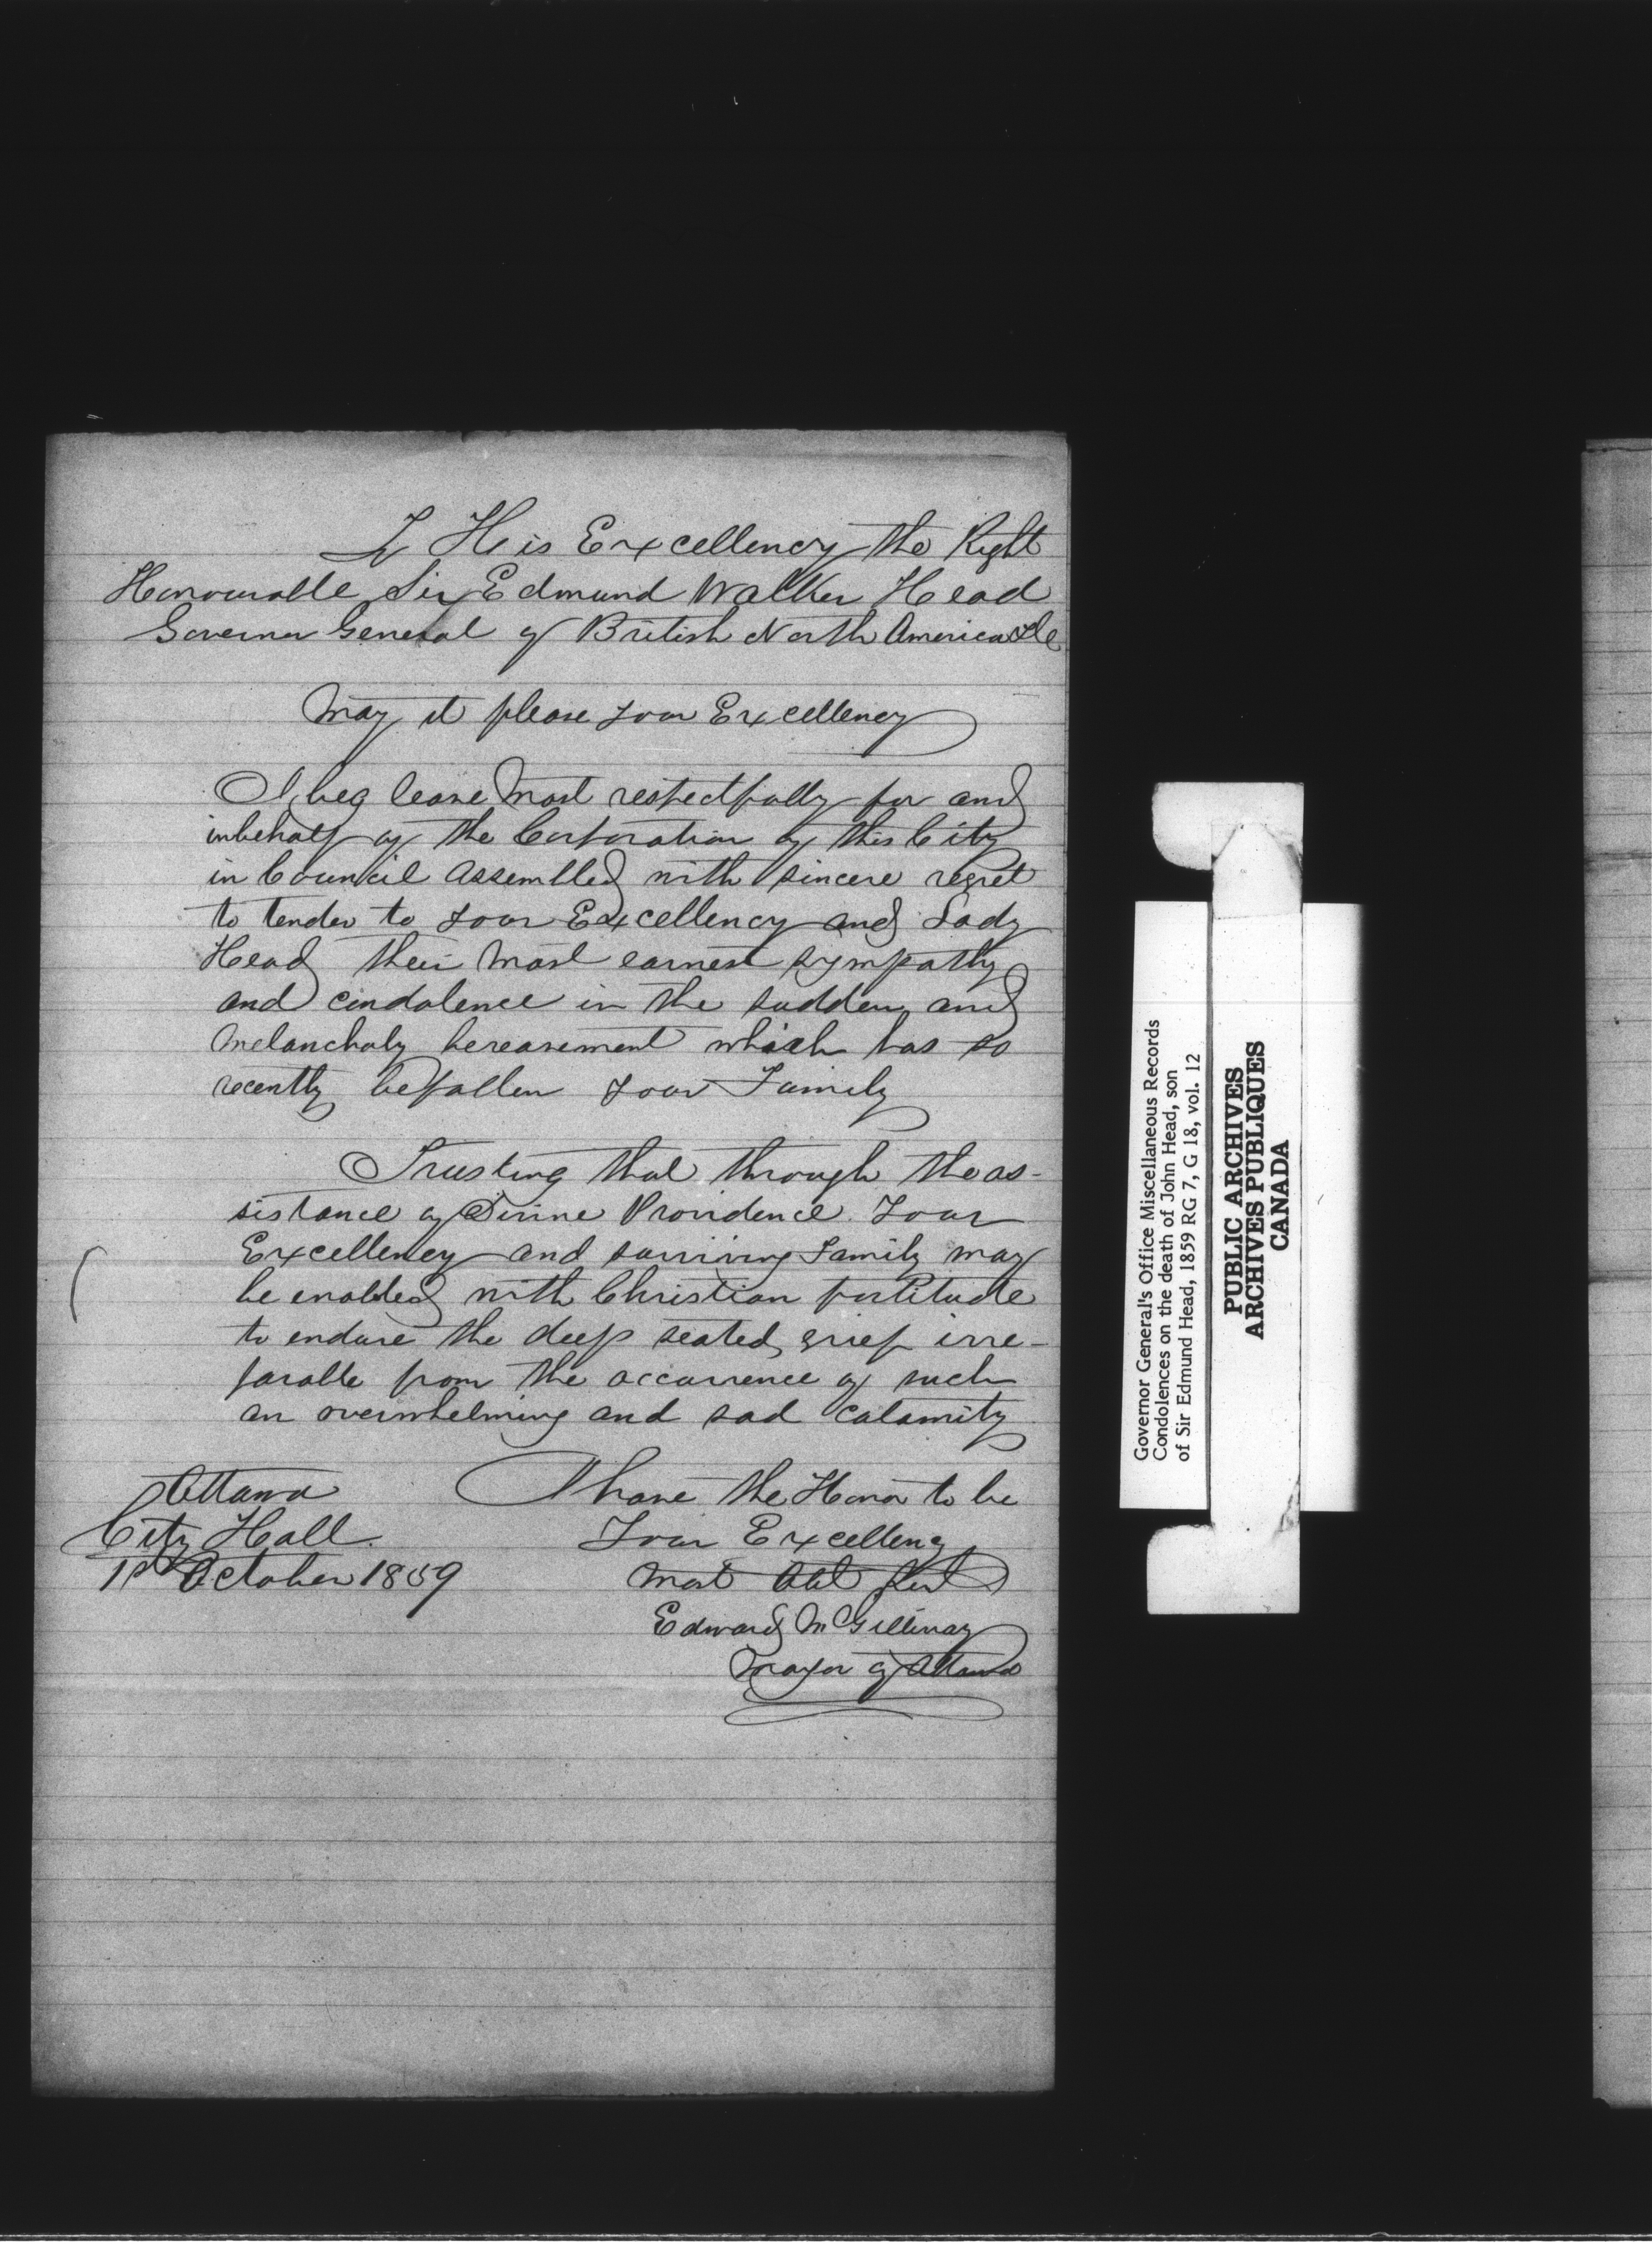 To His Excellency the Right
Honourable Sir Edmund Walker Head
Governor General of British North America &c
May it please Your Excellency
I beg leave Most respectfully for and
inbehalf of the Corporation of this City
in Council Assembled with sincere regret
to tender to Your Excellency and Lady
Head their Most earnest sympathy
and condolence in the sudden and
Melancholy bereavement which has so
recently befallen Your Family
Trusting that through the as-
sistance of Divine Providence. Your
Excellency and surviving Family may
be enabled with Christian fortitude
to endure the deep seated grief irre-
parable from the occurrence of such
an overwhelming and sad calamity
I have the Honor to be
Your Excellency
Most Obt Sert
Edward McGillivray
Mayor of Ottawa
Ottawa
City Hall.
1st October 1859
Governor General's Office Miscellaneous Records
Condolences on the death of John Head, son
of Sir Edmund Head, 1859 RG 7, G 18, vol. 12
PUBLIC ARCHIVES
ARCHIVES PUBLIQUES
CANADA